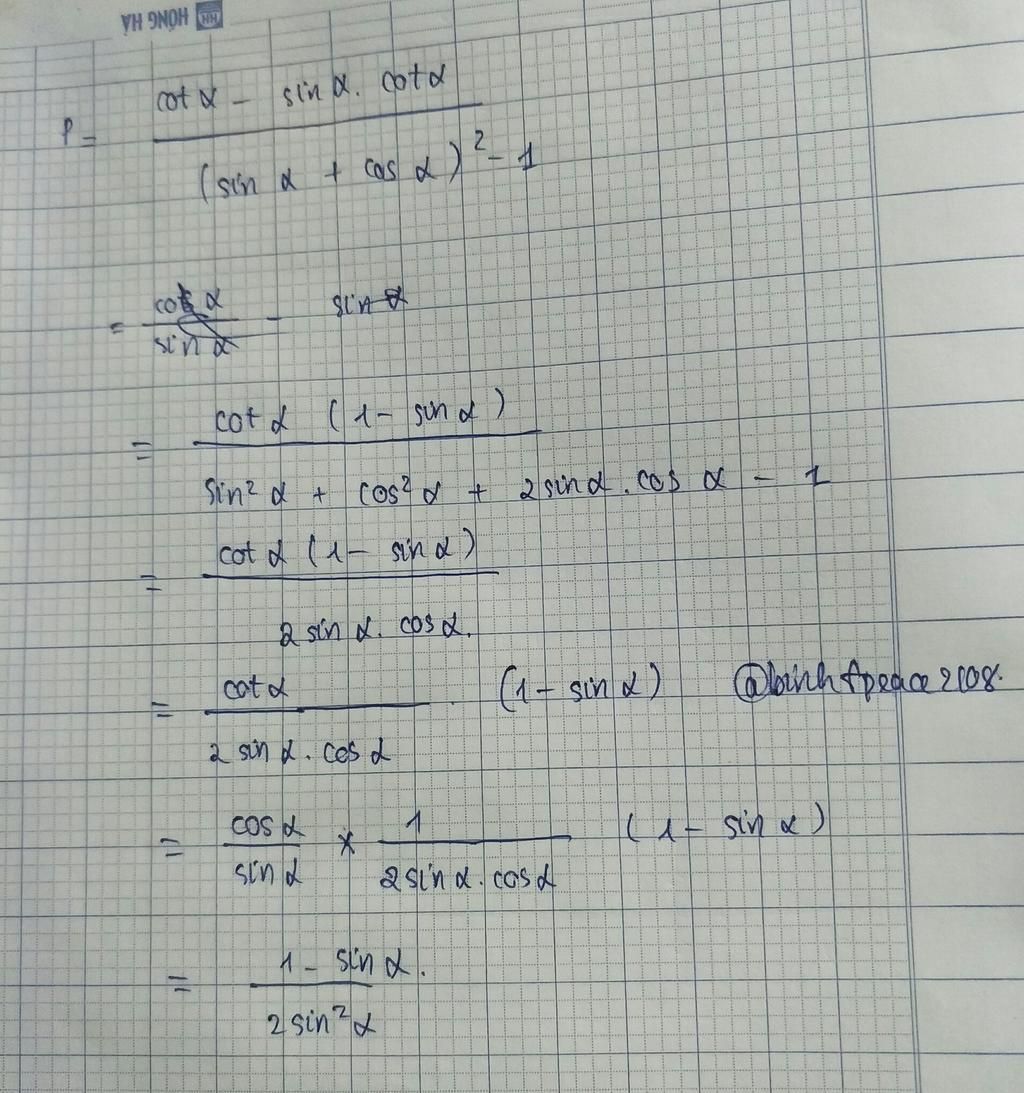 HỒNG HÀ HH
P = (cot α - sin α . cot α) / ((sin α + cos α)² - 1)
= cot α / sin α - sin α
= cot α (1 - sin α) / (sin² α + cos² α + 2 sin α . cos α - 1)
= cot α (1 - sin α) / (2 sin α . cos α.)
= cot α / (2 sin α . cos α) . (1 - sin α) @binhfpeace2108.
= cos α / sin α * 1 / (2 sin α . cos α) (1 - sin α)
= (1 - sin α.) / (2 sin² α)